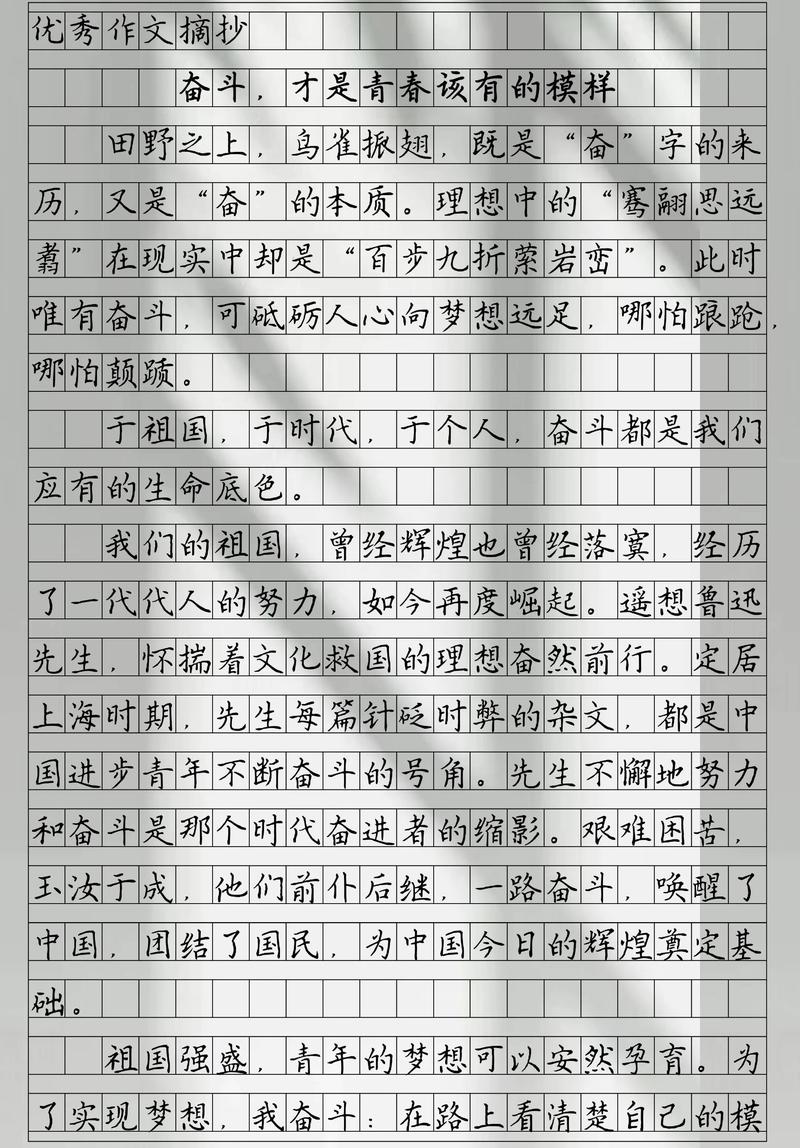 优秀作文摘抄
奋斗，才是青春该有的模样
田野之上，鸟雀振翅，既是“奋”字的来
历，又是“奋”的本质。理想中的“骞翮思远
翥”在现实中却是“百步九折萦岩峦”。此时
唯有奋斗，可砥砺人心向梦想远足，哪怕踉跄，
哪怕颠踬。
于祖国，于时代，于个人，奋斗都是我们
应有的生命底色。
我们的祖国，曾经辉煌也曾经落寞，经历
了一代代人的努力，如今再度崛起。遥想鲁迅
先生，怀揣着文化救国的理想奋然前行。定居
上海时期，先生每篇针砭时弊的杂文，都是中
国进步青年不断奋斗的号角。先生不懈地努力
和奋斗是那个时代奋进者的缩影。艰难困苦，
玉汝于成，他们前仆后继，一路奋斗，唤醒了
中国，团结了国民，为中国今日的辉煌奠定基
础。
祖国强盛，青年的梦想可以安然孕育。为
了实现梦想，我奋斗：在路上看清楚自己的模